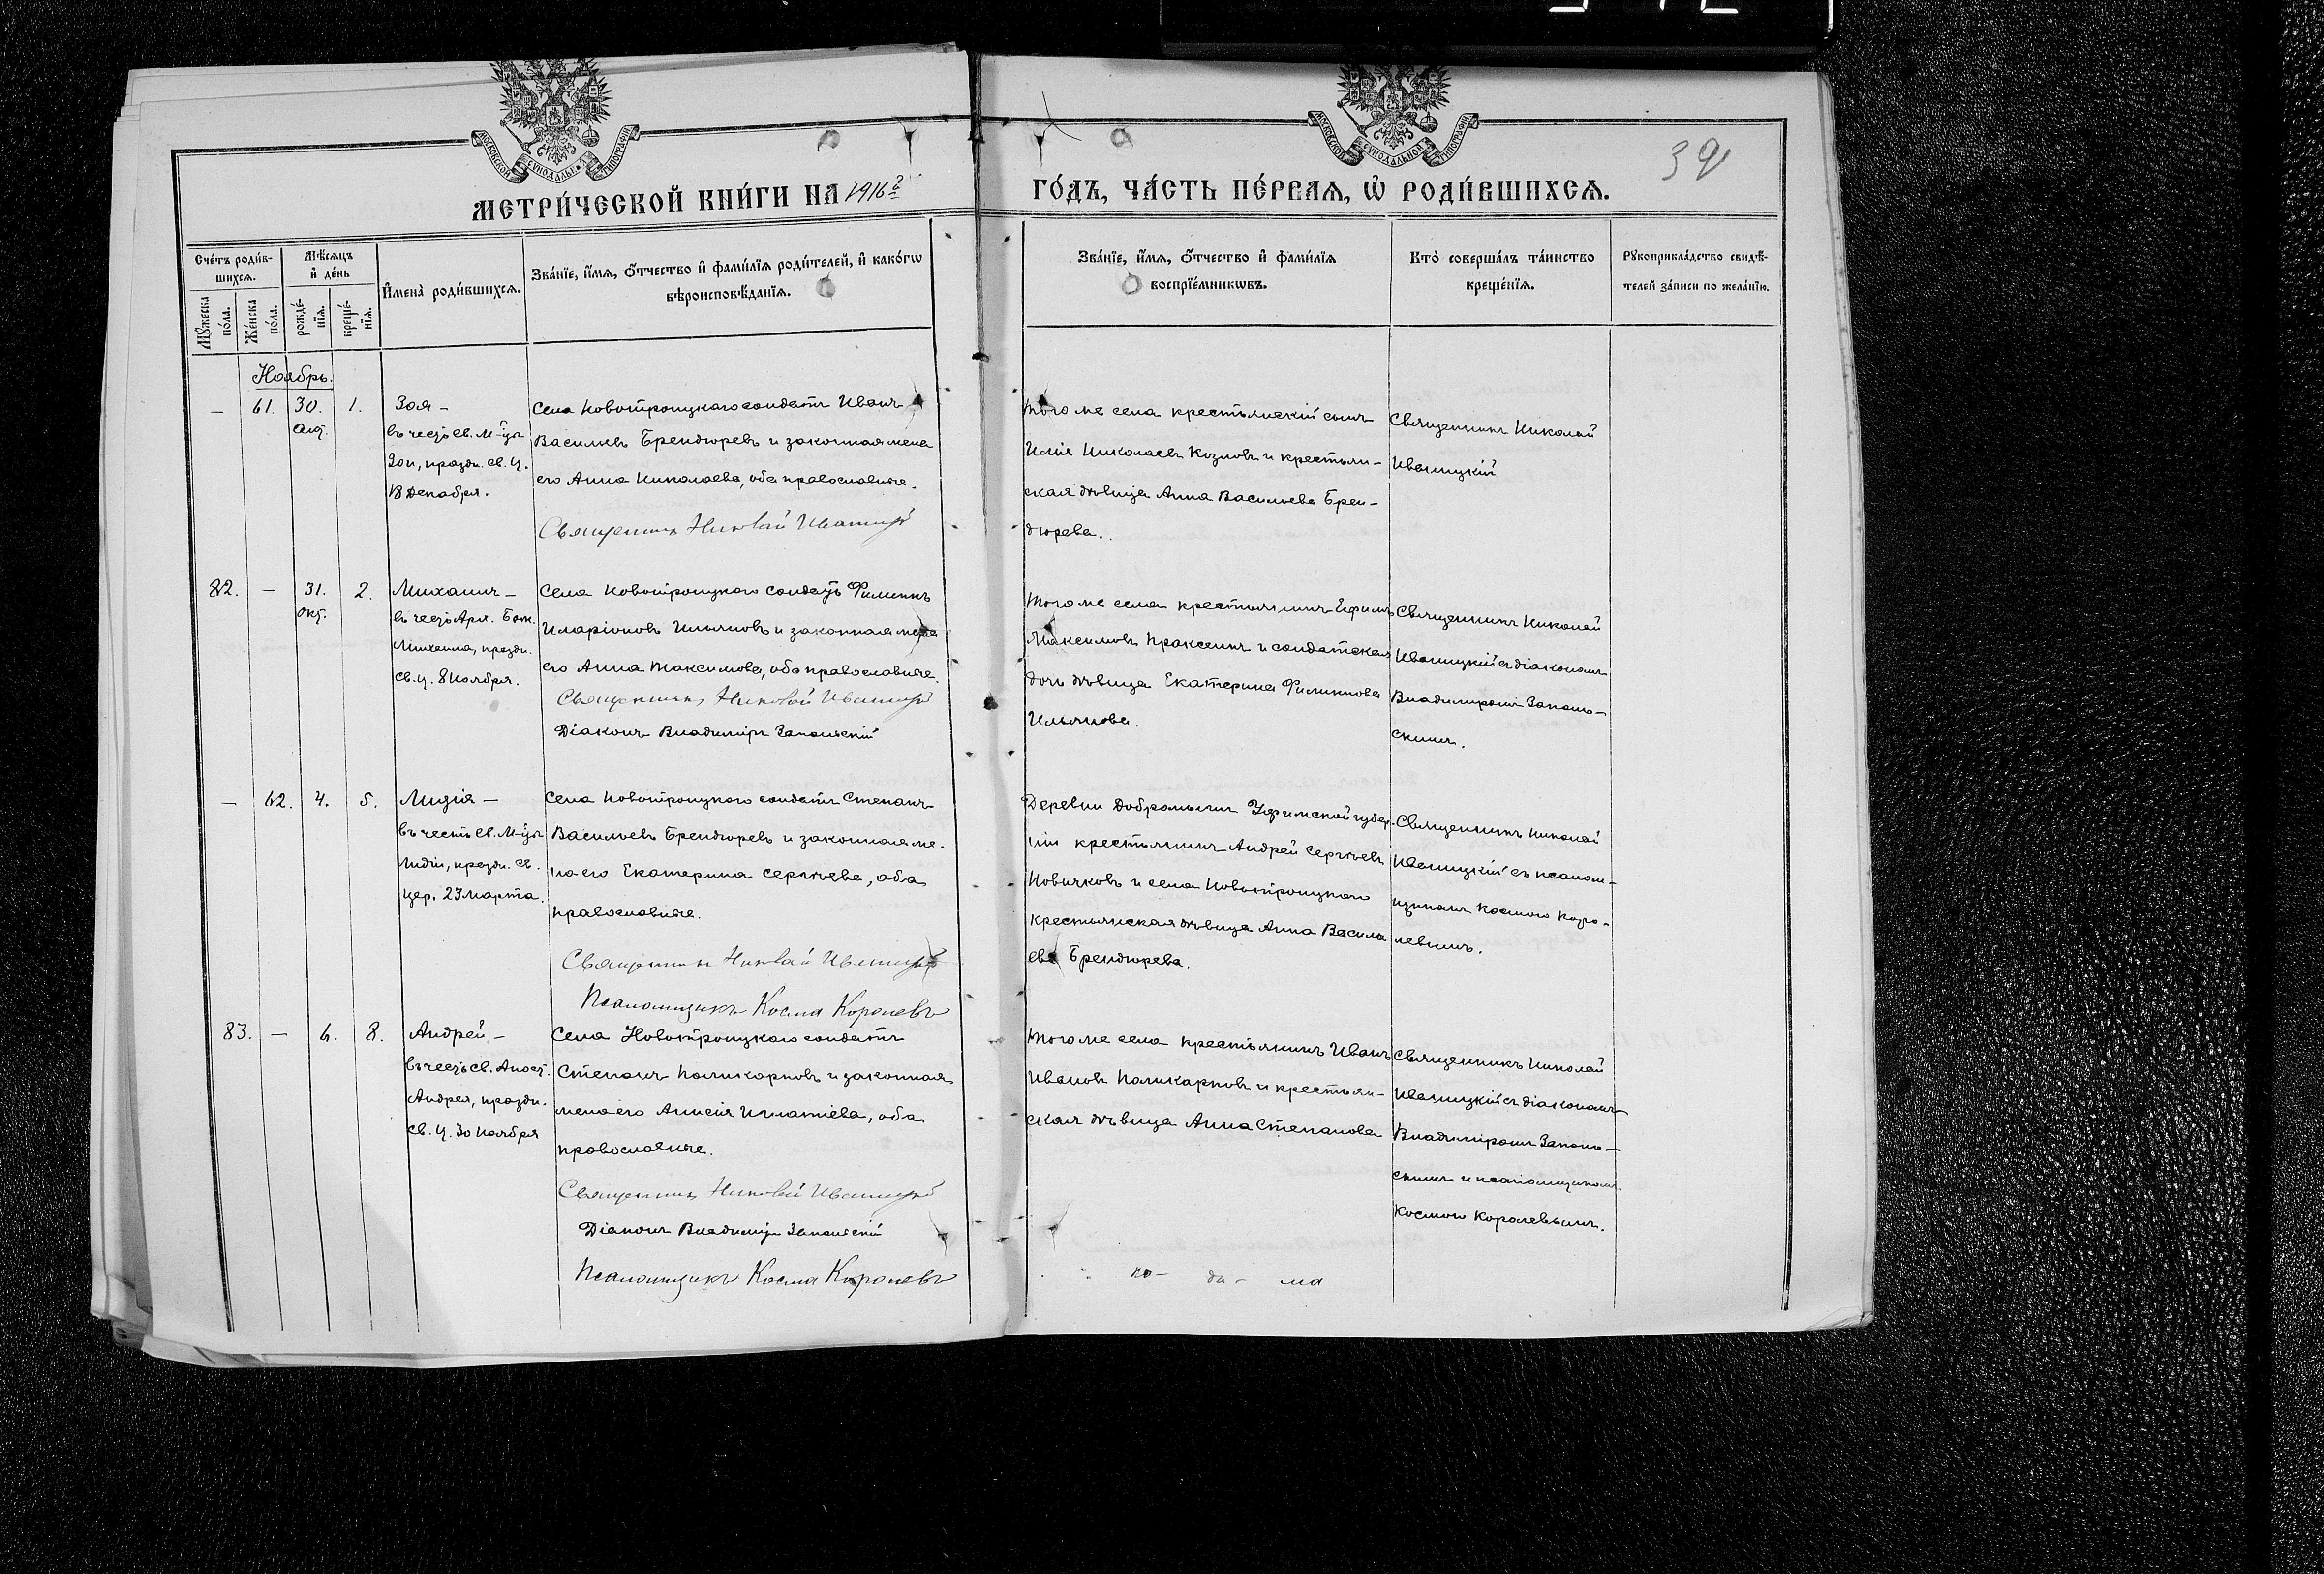 МОСКОВСКОЙ СѴНОДАЛЬН. ТИПОГРАФІИ
МОСКОВСКОЙ СѴНОДАЛЬНОЙ ТИПОГРАФІИ
39
МЕТРИ́ЧЕСКОЙ КНИ́ГИ НА 1916 й
ГО́ДЪ, ЧА́СТЬ ПЕ́РВАЯ, Ѽ РОДИ́ВШИХСѦ.
Сче́тъ роди́в-
шихсѧ.
Мꙋжеска по́ла.
Же́нска по́ла.
Мѣ́сѧцъ
и҆ де́нь
рожде́-
нїѧ.
креще́-
нїѧ.
И҆мена̀ роди́вшихсѧ.
Зва́нїе, и҆́мѧ, о҆́тчество и҆ фами́лїѧ роди́телей, и҆ како́гѡ
вѣроисповѣ́данїѧ.
Зва́нїе, и҆́мѧ, о҆́тчество и҆ фами́лїѧ
воспрїе́мникѡвъ.
Кто̀ соверша́лъ та́инство
креще́нїѧ.
Рꙋкоприкла́дство свидѣ́-
телей за́писи по жела́нїю.
Ноябрь.
— 61. 30. 1.
Окт.
Зоя —
въ честь св. М-цы
Зои, праздн. св. ц.
18 Декабря.
Села Новотроицкаго солдатъ Иванъ
Васильевъ Брендюревъ и законная жена
его Анна Николаева, оба православные.
Священникъ Николай Иваницкій
Того же села крестьянскій сынъ
Илія Николаевъ Козловъ и крестьян-
ская дѣвица Анна Васильева Брен-
дюрева.
Священникъ Николай
Иваницкій
82. — 31. 2.
Окт.
Михаилъ —
въ честь Арх. Бож.
Михаила, праздн.
св. ц. 8 Ноября.
Села Новотроицкаго солдатъ Филиппъ
Иларіоновъ Ильяновъ и законная жена
его Анна Максимова, оба православные.
Священникъ Николай Иваницкій
Діаконъ Владиміръ Запольскій
Того же села крестьянинъ Ефимъ
Максимовъ Праксинъ и солдатская
дочь дѣвица Екатерина Филиппова
Ильянова.
Священникъ Николай
Иваницкій съ діакономъ
Владиміромъ Заполь-
скимъ.
— 62. 4. 5.
Лидія —
въ честь св. М-цы
Лидіи, праздн. св.
цер. 23 Марта.
Села Новотроицкаго солдатъ Степанъ
Васильевъ Брендюревъ и законная же-
на его Екатерина Сергѣева, оба
православные.
Священникъ Николай Иваницкій
Псаломщикъ Косма Королевъ
Деревни Добромыслъ Уфимской губер-
ніи крестьянинъ Андрей Сергѣевъ
Новичковъ и села Новотроицкаго
крестьянская дѣвица Анна Василь
ева Брендюрева.
Священникъ Николай
Иваницкій съ псалом-
щикомъ Космою Коро-
левымъ.
83. — 6. 8.
Андрей —
въ честь св. Апост.
Андрея, праздн.
св. ц. 30 Ноября
Села Новотроицкаго солдатъ
Степанъ Поликарповъ и законная
жена его Анисія Игнатіева, оба
православные.
Священникъ Николай Иваницкій
Діаконъ Владиміръ Запольскій
Псаломщикъ Косма Королевъ
Того же села крестьянинъ Иванъ
Ивановъ Поликарповъ и крестьян-
ская дѣвица Анна Степанова
Священникъ Николай
Иваницкій съ діакономъ
Владиміромъ Заполь-
скимъ и псаломщикомъ
Космою Королевымъ.